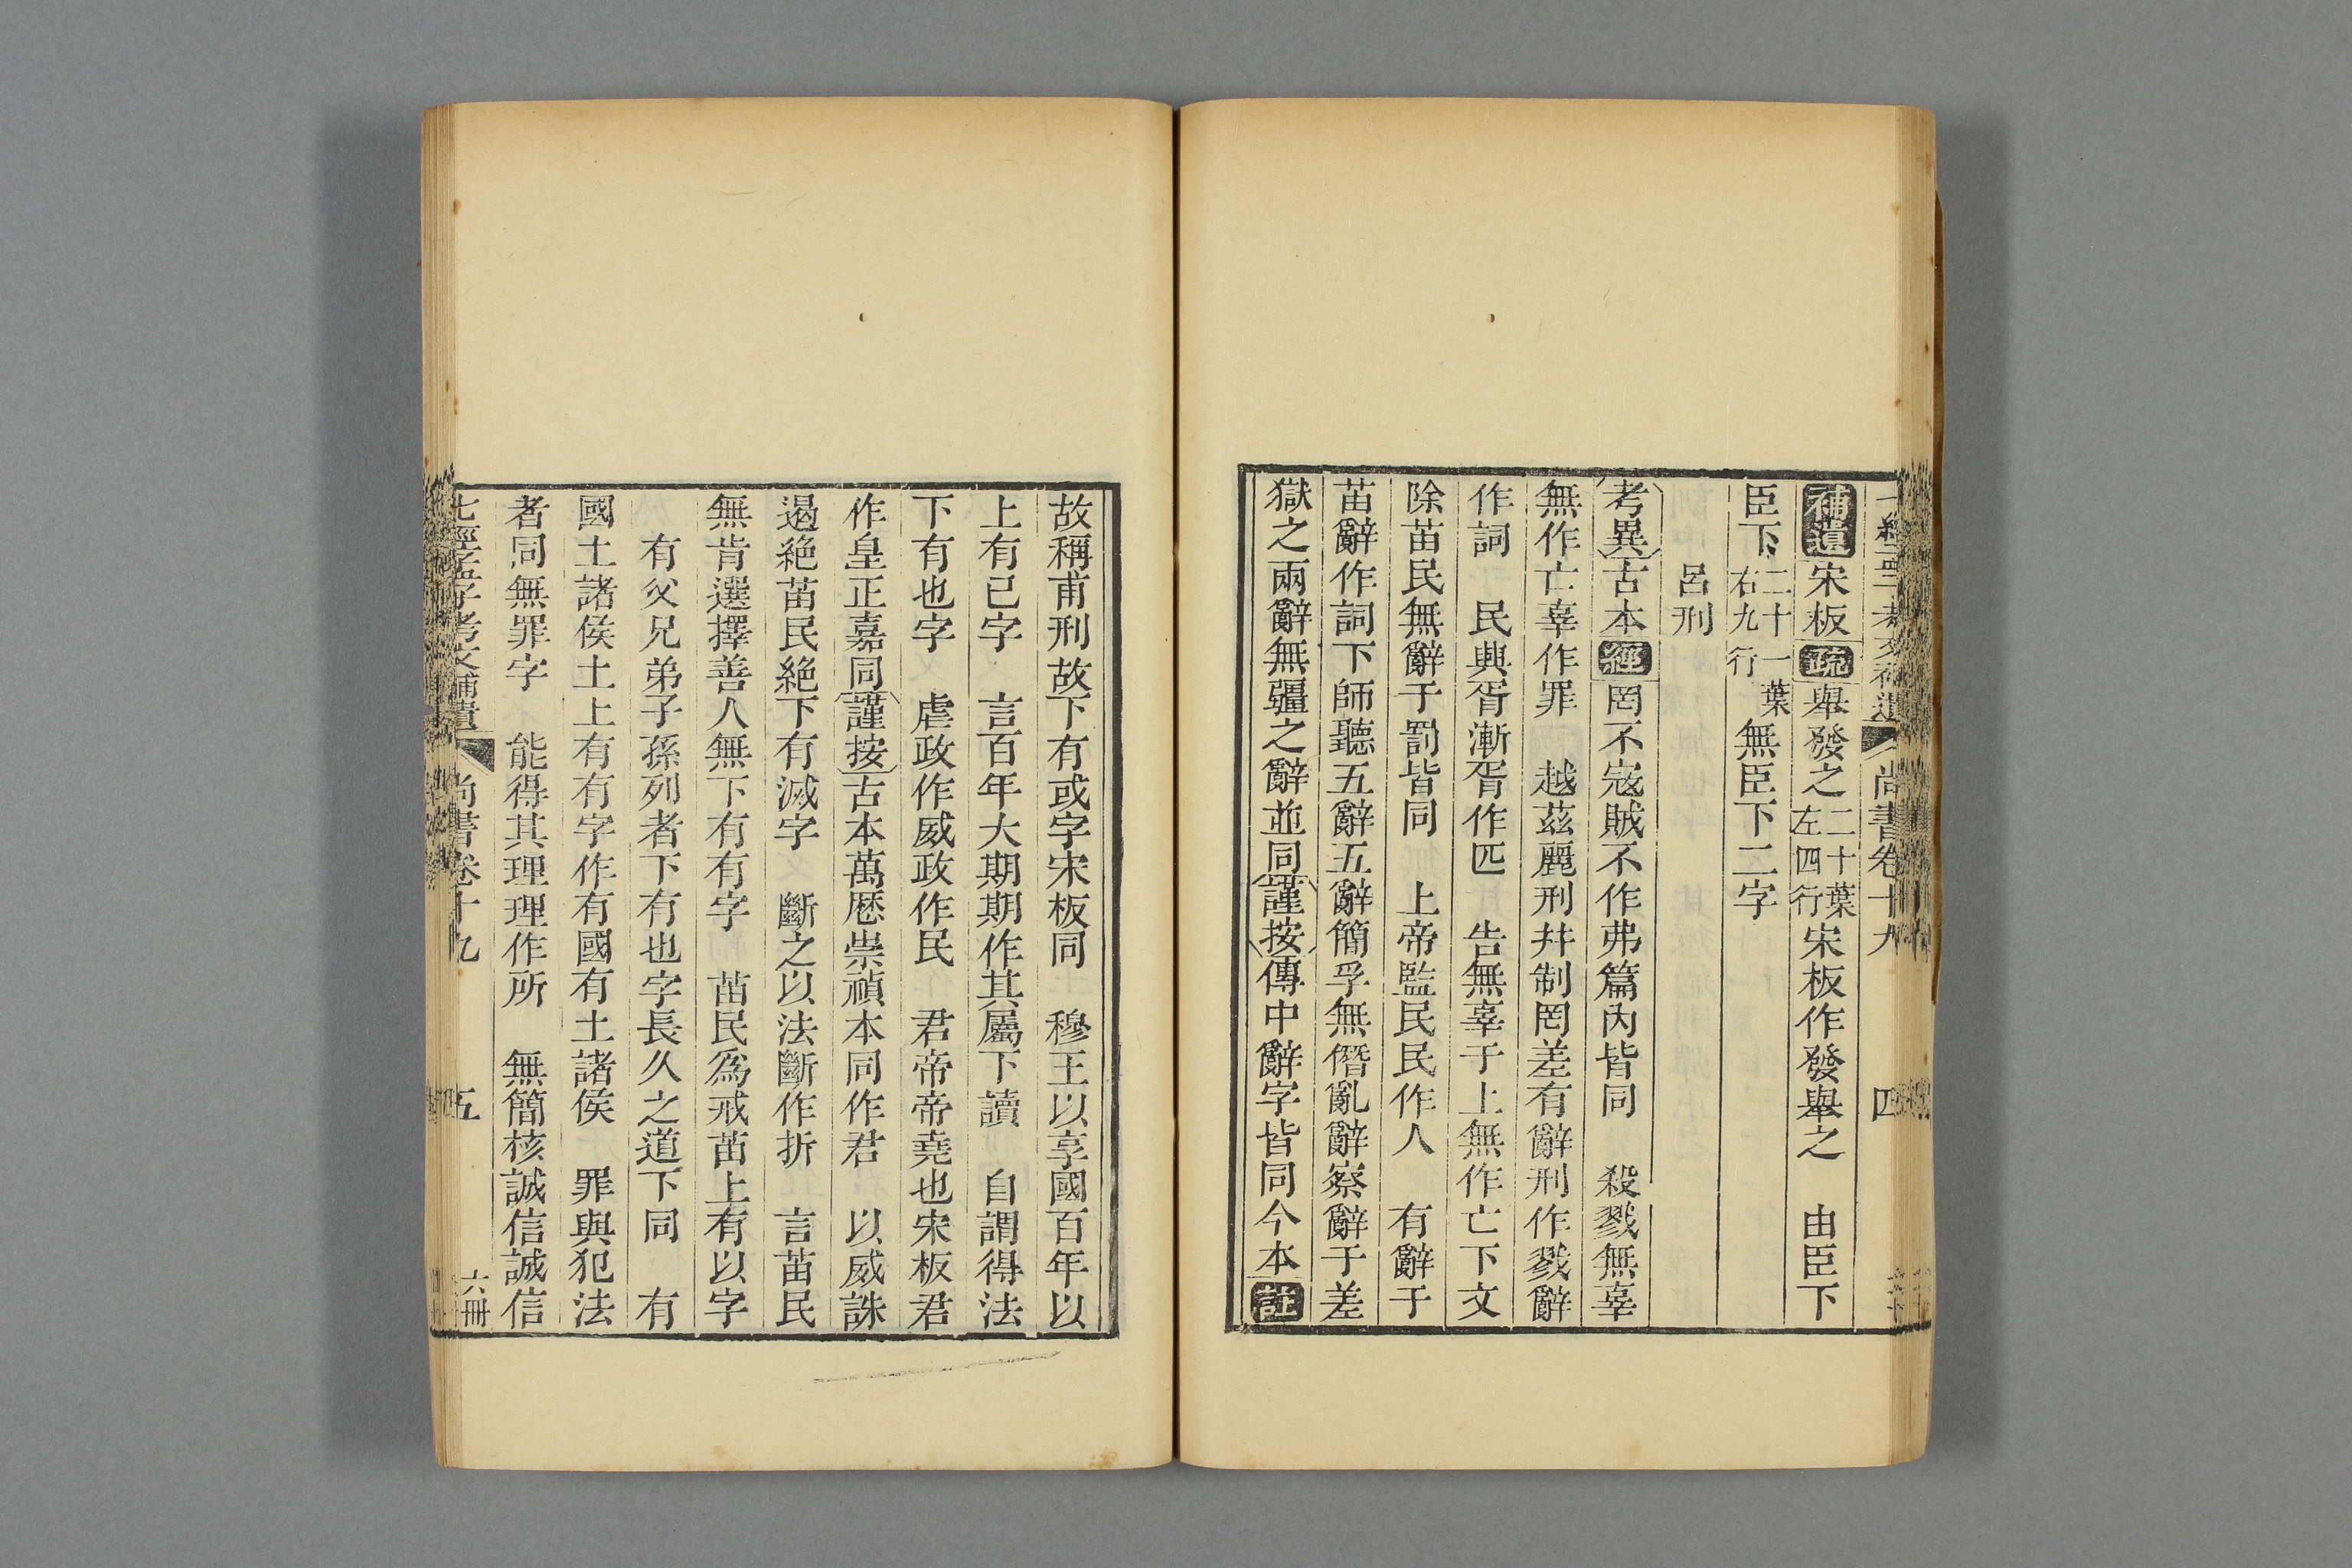 七經孟子考文補遺 尚書卷十九 四
補遺宋板疏舉發之二十葉左四行宋板作發舉之 由臣下
臣下二十一葉右九行無臣下二字
呂刑
考異古本經罔不寇賊不作弗篇內皆同 殺戮無辜
無作亡辜作罪 越茲麗刑幷制罔差有辭刑作戮辭
作詞 民興胥漸胥作匹 告無辜于上無作亡下文
除苗民無辭于罰皆同 上帝監民民作人 有辭于
苗辭作詞下師聽五辭五辭簡孚無僭亂辭察辭于差
獄之兩辭無疆之辭並同謹按傳中辭字皆同今本註
故稱甫刑故下有或字宋板同 穆王以享國百年以
上有已字 言百年大期期作其屬下讀 自謂得法
下有也字 虐政作威政作民 君帝帝堯也宋板君
作皇正嘉同謹按古本萬曆崇禎本同作君 以威誅
遏絕苗民絕下有滅字 斷之以法斷作折 言苗民
無肯選擇善人無下有有字 苗民爲戒苗上有以字
有父兄弟子孫列者下有也字長久之道下同 有
國土諸侯土上有有字作有國有土諸侯 罪與犯法
者同無罪字 能得其理理作所 無簡核誠信誠信
七經孟子考文補遺 尚書卷十九 五 六冊